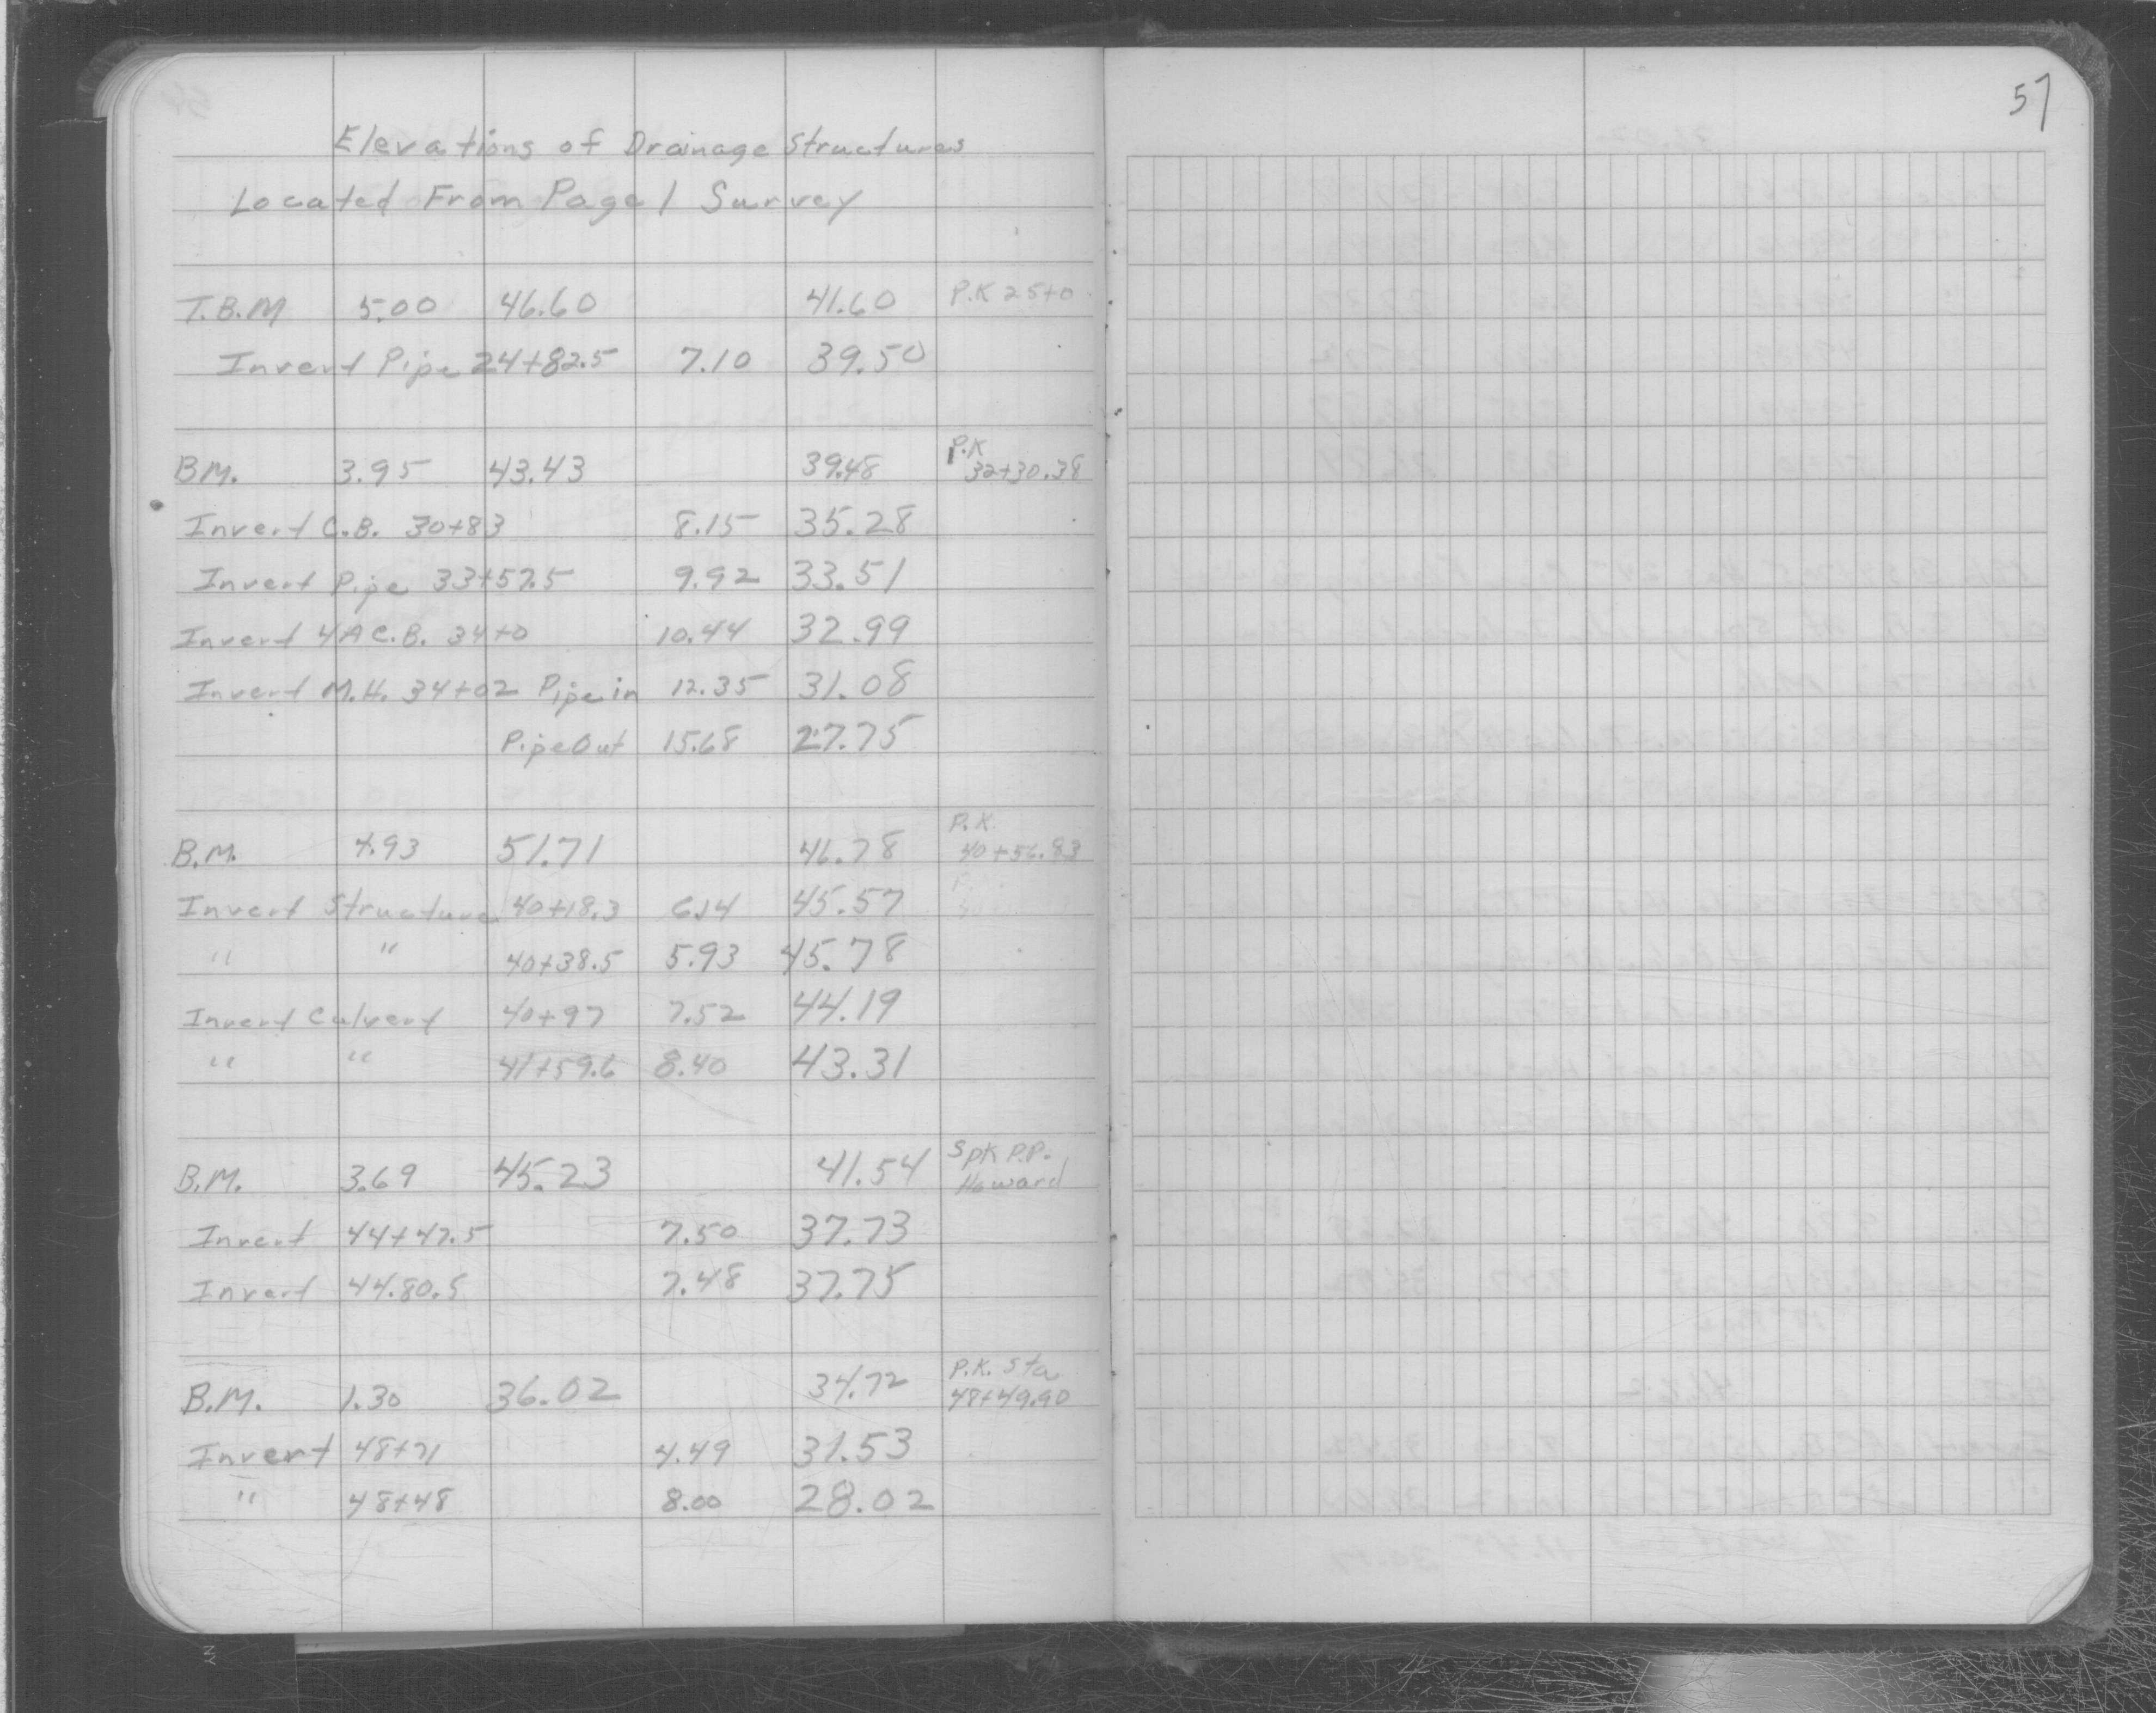 57
Elevations of Drainage Structures
Located From Page 1 Survey
T.B.M 5.00 46.60 41.60 P.K 25+0
Invert Pipe 24+82.5 7.10 39.50
B.M. 3.95 43.43 39.48 P.K 32+30.38
Invert C.B. 30+83 8.15 35.28
Invert Pipe 33+57.5 9.92 33.51
Invert 4A C.B. 34+0 10.44 32.99
Invert M.H. 34+02 Pipe in 12.35 31.08
Pipe Out 15.68 27.75
B.M. 4.93 51.71 46.78 P.K. 40+56.83
Invert Structure 40+18.3 6.14 45.57
" " 40+38.5 5.93 45.78
Invert Culvert 40+97 7.52 44.19
" " 41+59.6 8.40 43.31
B.M. 3.69 45.23 41.54 Spk P.P. Howard
Invert 44+47.5 7.50 37.73
Invert 44.80.5 7.48 37.75
B.M. 1.30 36.02 34.72 P.K. Sta 48+49.90
Invert 48+71 4.49 31.53
" 48+48 8.00 28.02
NY